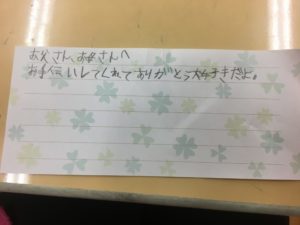 お父さん、お母さんへ
お手伝いしてくれてありがとう大好きだよ。